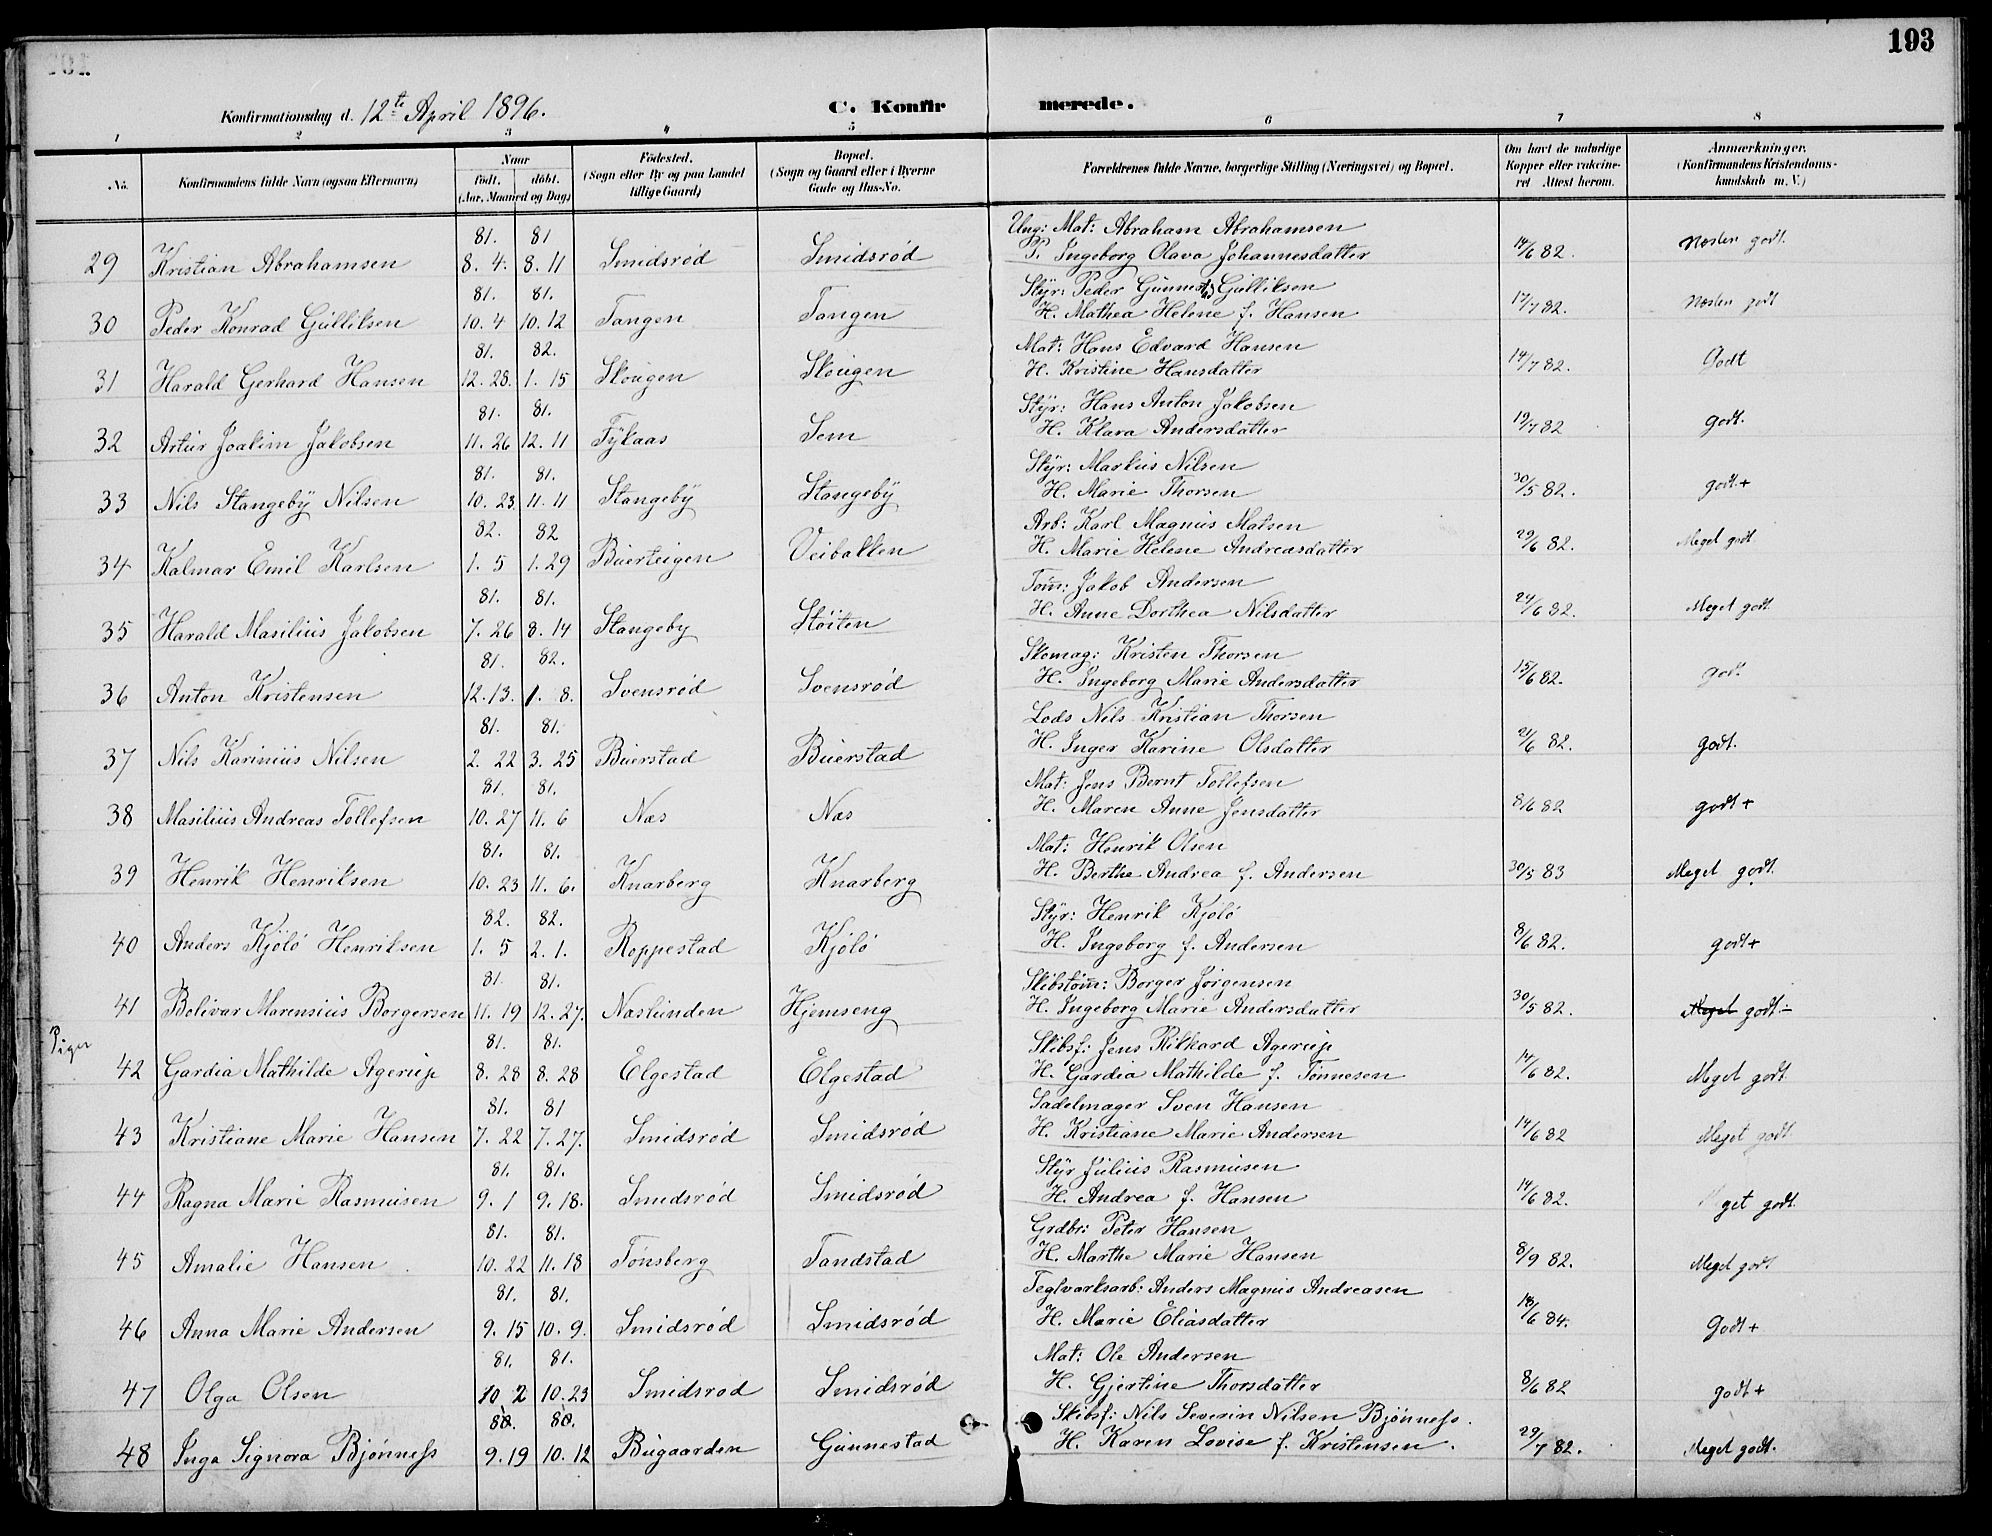 193
Konfirmationsdag d. 12te April 1896.
C. Konfirmerede.
1 2 3 4 5 6 7 8
No. Konfirmandens fulde Navn (ogsaa Efternavn) Naar født. døbt. (Aar, Maaned og Dag) Fødested. (Sogn eller By og paa Landet tillige Gaard) Bopæl. (Sogn og Gaard eller i Byerne Gade og Hus-No. Forældrenes fulde Navne, borgerlige Stilling (Næringsvei) og Bopæl. Om havt de naturlige Kopper eller vakcineret. Attest herom. Anmærkninger. (Konfirmandens Kristendomskundskab m. V.)
81. 81 Ung: Mat: Abraham Abrahamsen
29 Kristian Abrahamsen 8. 4. 8. 11 Smidsrød Smidsrød P. Ingeborg Olava Johannesdatter 14/6 82. Næsten godt.
81. 81. Styr: Peder Gunnerius Gulliksen
30 Peder Konrad Gulliksen 10. 4 10. 12 Tangen Tangen H. Mathea Helene f. Hansen 17/7 82. Næsten godt
81. 82. Mat: Hans Edvard Hansen
31 Harald Gerhard Hansen 12. 28. 1. 15 Skougen Skougen H. Kristine Hansdatter 14/7 82. Godt
81. 81. Styr: Hans Anton Jakobsen
32 Artur Joakim Jakobsen 11. 26 12. 11 Fykaas Sem H. Klara Andersdatter 19/7 82 godt.
81. 81. Styr: Markus Nilsen
33 Nils Stangeby Nilsen 10. 23. 11. 11 Stangeby Stangeby H. Marie Thorsen 30/5 82. godt+
82. 82 Arb: Karl Magnus Matsen
34 Kalmar Emil Karlsen 1. 5 1. 29 Buerteigen Veibakken H. Marie Helene Andreasdatter 29/6 82. Meget godt
81. 81. Tøm: Jakob Andersen
35 Harald Masilius Jakobsen 7. 26 8. 14 Stangeby Støiten H. Anne Dorthea Nilsdatter 24/6 82. Meget godt
81. 82. Skomag: Kristen Thorsen
36 Anton Kristensen 12. 13. 1. 8. Svensrød Svensrød H. Ingeborg Marie Andersdatter 15/6 82. godt
81. 81. Lods Nils Kristian Thorsen
37 Nils Karinius Nilsen 2. 22 3. 25 Buerstad Buerstad H. Inger Karine Olsdatter 21/6 82. godt.
81. 81. Mat. Jens Bernt Tollefsen
38 Masilius Andreas Tollefsen 10. 27 11. 6 Næs Næs H. Maren Anne Jensdatter 8/6 82 godt+
81. 81. Mat: Henrik Olsen
39 Henrik Henriksen 10. 23 11. 6. Knarberg Knarberg H. Berthe Andrea f. Andersen 30/5 83 Meget godt.
82. 82. Styr: Henrik Kjølø
40 Anders Kjølø Henriksen 1. 5 2. 1. Roppestad Kjølø H. Ingeborg f. Andersen 8/6 82. godt+
81. 81. Skibstøm: Borger Jørgensen
41 Bolivar Marensius Borgersen 11. 19 12. 27. Næslunden Hjemseng H. Ingeborg Marie Andersdatter 30/5 82. Meget godt-
Piger
81. 81. Skibsf: Jens Rikhard Agerup
42 Gardia Mathilde Agerup 8. 28 8. 28 Elgestad Elgestad H. Gardia Mathilde f. Tønnesen 14/6 82. Meget godt.
81. 81 Sadelmager Sven Hansen
43 Kristiane Marie Hansen 7. 22 7. 27. Smidsrød Smidsrød H. Kristiane Marie Andersen 14/6 82 Meget godt.
81. 81. Styr Julius Rasmusen
44 Ragna Marie Rasmusen 9. 1 9. 18. Smidsrød Smidsrød H. Andrea f. Hansen 14/6 82. Meget godt.
81. 81. Grdbr: Peter Hansen
45 Amalie Hansen 10. 22 11. 18 Tønsberg Tandstad H. Marthe Marie Hansen 8/9 82. Meget godt
81. 81. Teglværksarb: Anders Magnus Andreasen
46 Anna Marie Andersen 9. 15 10. 9. Smidsrød Smidsrød H. Marie Eliasdatter 18/6 84. Godt+
81. 81. Mat: Ole Andersen
47 Olga Olsen 10 2 10. 23 Smidsrød Smidsrød H. Gjertine Thorsdatter 8/6 82 godt+
80. 80. Skibsf: Nils Severin Nilsen Bjønness.
48 Inga Signora Bjønness 9. 19 10. 12 Bugaarden Gunnestad H. Karen Lovise f. Kristensen. 29/7 82. Meget godt.